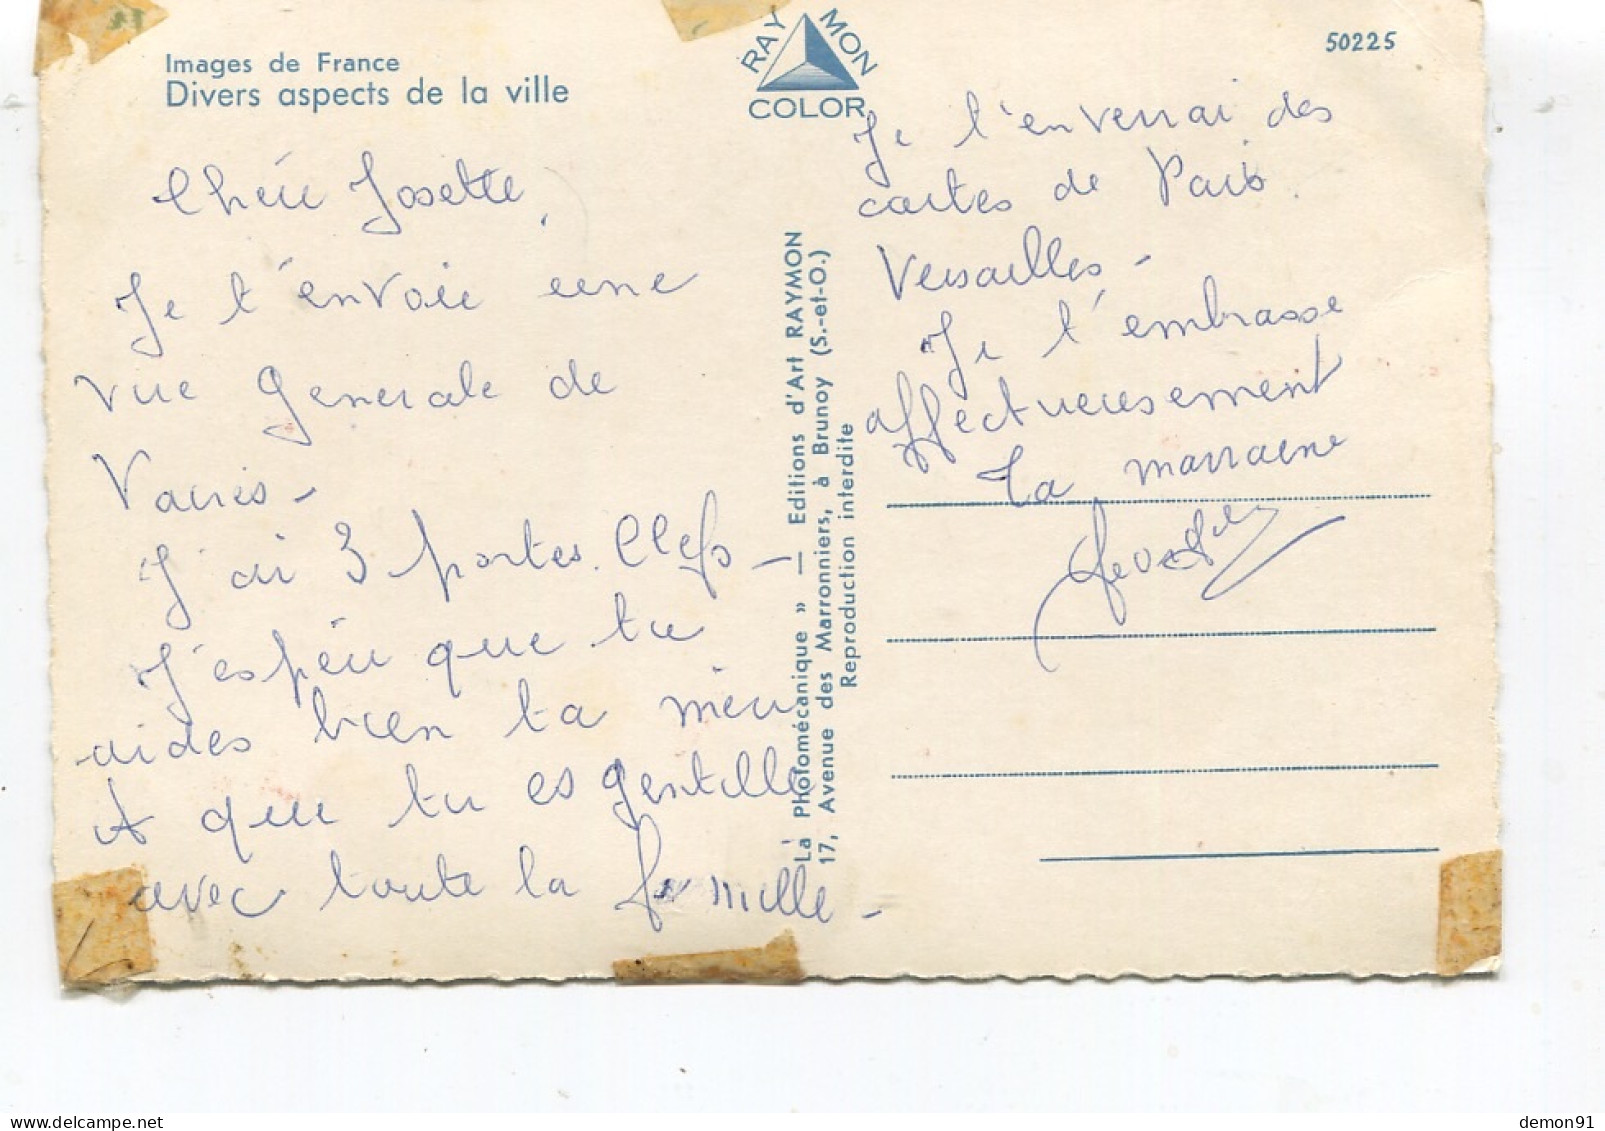 Images de France
Divers aspects de la ville
RAYMON
COLOR
50225
Chérie Josette,
Je t'envoie une
vue Generale de
J'ai 3 portes. Clefs -
J'espère que tu
aides bien ta mère
A que tu es gentille
avec toute la famille -
La Photomécanique » — Editions d'Art RAYMON
17, Avenue des Marronniers, à Brunoy (S.-et-O.)
Reproduction interdite
Je t'enverrai des
cartes de Paris
Versailles -
Je t'embrasse
affectueusement
Ta marraine
delcampe.net
demon91